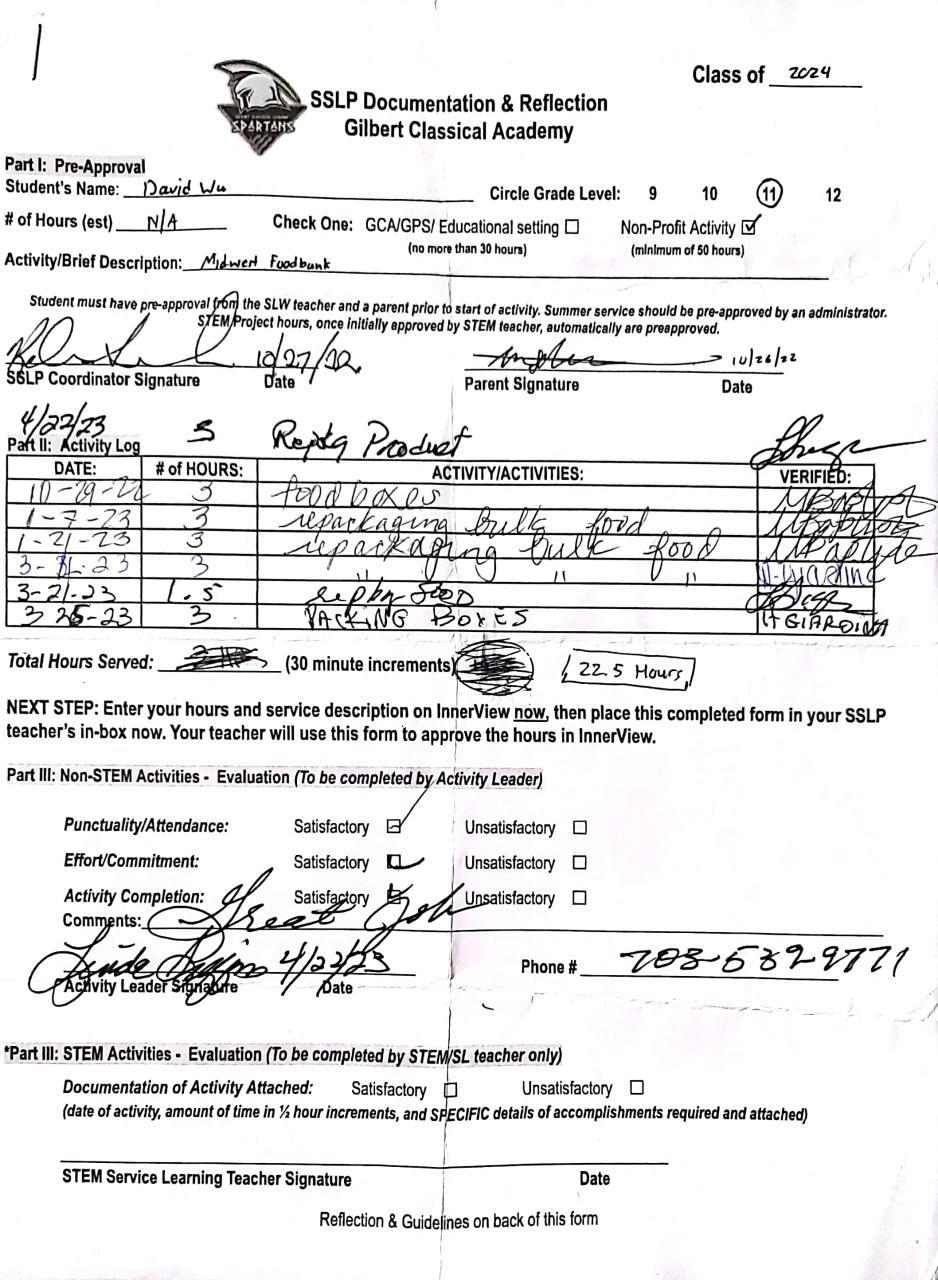 Class of 2024
SPARTANS
SSLP Documentation & Reflection
Gilbert Classical Academy
Part I: Pre-Approval
Student's Name: David Wu Circle Grade Level: 9 10 11 12
# of Hours (est) N/A Check One: GCA/GPS/ Educational setting ☐ Non-Profit Activity ☑
(no more than 30 hours) (minimum of 50 hours)
Activity/Brief Description: Midwest Foodbank
Student must have pre-approval from the SLW teacher and a parent prior to start of activity. Summer service should be pre-approved by an administrator.
STEM Project hours, once initially approved by STEM teacher, automatically are preapproved.
10/27/22 10/26/22
SSLP Coordinator Signature Date Parent Signature Date
4/22/23 3 Product
Part II: Activity Log
DATE: # of HOURS: ACTIVITY/ACTIVITIES: VERIFIED:
10-29-22 3 food boxes
1-7-23 3 repackaging bulk food
1-21-23 3 repackaging bulk food
3 " " "
3-21-23 1.5 food
3 PACKING BOXES GIARDINA
Total Hours Served: (30 minute increments) 22.5 Hours
NEXT STEP: Enter your hours and service description on InnerView now, then place this completed form in your SSLP
teacher's in-box now. Your teacher will use this form to approve the hours in InnerView.
Part III: Non-STEM Activities - Evaluation (To be completed by Activity Leader)
Punctuality/Attendance: Satisfactory ☑ Unsatisfactory ☐
Effort/Commitment: Satisfactory ☑ Unsatisfactory ☐
Activity Completion: Satisfactory ☑ Unsatisfactory ☐
Comments: Great Job
Linda 4/22/23 Phone # 703-639-9771
Activity Leader Signature Date
*Part III: STEM Activities - Evaluation (To be completed by STEM/SL teacher only)
Documentation of Activity Attached: Satisfactory ☐ Unsatisfactory ☐
(date of activity, amount of time in ½ hour increments, and SPECIFIC details of accomplishments required and attached)
STEM Service Learning Teacher Signature Date
Reflection & Guidelines on back of this form